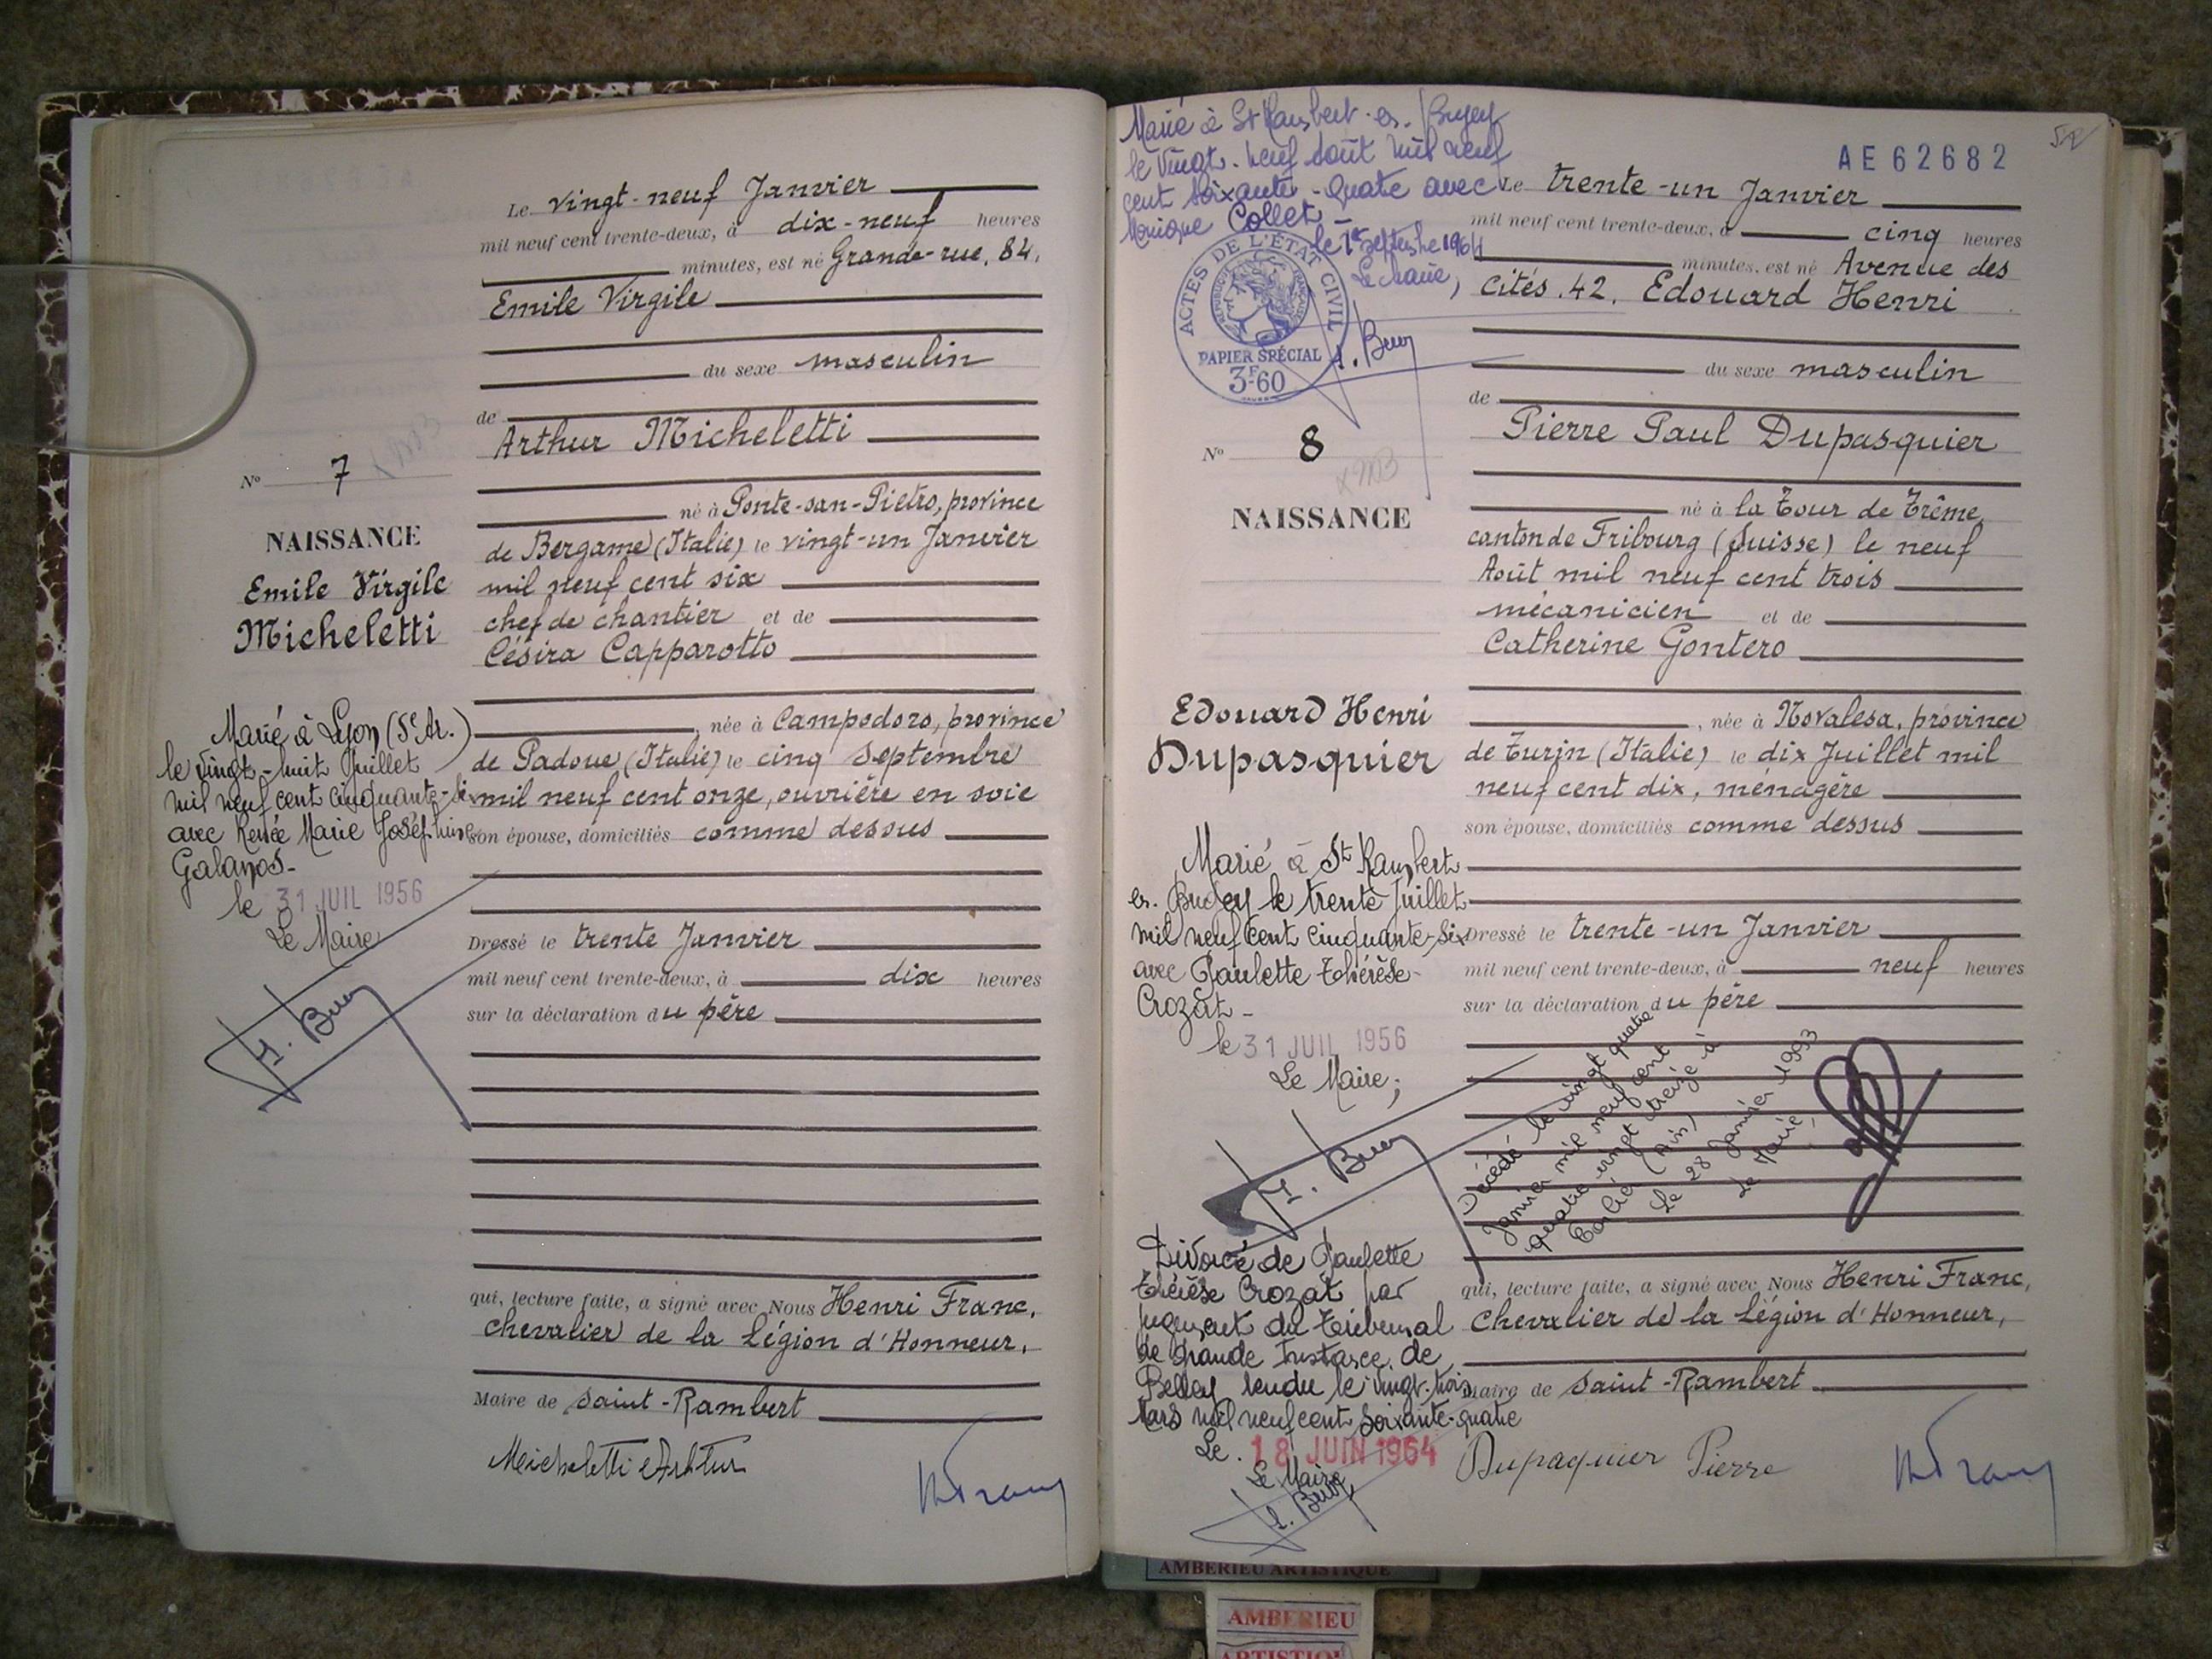 Le vingt-neuf Janvier
mil neuf cent trente-deux, à dix-neuf heures
minutes, est né Grande-rue, 84,
Emile Virgile
du sexe masculin
de
Arthur Micheletti
né à Ponte-san-Pietro, province
de Bergame (Italie) le vingt-un Janvier
mil neuf cent six
chef de chantier et de
Césira Capparotto
née à Campodoro, province
de Padoue (Italie) le cinq Septembre
mil neuf cent onze, ouvrière en soie
son épouse, domiciliés comme dessus
Dressé le trente Janvier
mil neuf cent trente-deux, à dix heures
sur la déclaration du père
qui, lecture faite, a signé avec Nous Henri Franc,
chevalier de la Légion d'Honneur,
Maire de Saint-Rambert
Micheletti Arthur
N° 7
NAISSANCE
Emile Virgile
Micheletti
Marié à Lyon (5e Ar.)
le vingt-huit Juillet
mil neuf cent cinquante-six
avec Renée Marie Joséphine
Galanos-
le 31 JUIL 1956
Le Maire
Marié à St Rambert-en-Bugey
le vingt-neuf Août mil neuf
cent soixante-quatre avec
Monique Collet-
le 1er septembre 1964
Le Maire,
ACTES DE L'ÉTAT CIVIL
RÉPUBLIQUE FRANÇAISE
PAPIER SPÉCIAL
3F60
AE 62682
52
Le trente-un Janvier
mil neuf cent trente-deux, à cinq heures
minutes, est né Avenue des
Cités, 42, Edouard Henri
du sexe masculin
de
Pierre Paul Dupasquier
né à la Tour de Trême
canton de Fribourg (Suisse) le neuf
Août mil neuf cent trois
mécanicien et de
Catherine Gontero
née à Novalesa, province
de Turin (Italie) le dix Juillet mil
neuf cent dix, ménagère
son épouse, domiciliés comme dessus
Dressé le trente-un Janvier
mil neuf cent trente-deux, à neuf heures
sur la déclaration du père
Décédé le vingt quatre
Janvier mil neuf cent
quatre vingt treize à
(Ain)
Le 28 Janvier 1993
Le Maire,
qui, lecture faite, a signé avec Nous Henri Franc,
chevalier de la Légion d'Honneur,
Maire de Saint-Rambert
Dupaquier Pierre
N° 8
NAISSANCE
Edouard Henri
Dupasquier
Marié à St Rambert
en-Bugey le trente Juillet
mil neuf cent cinquante-six
avec Paulette Thérèse
Crozat-
le 31 JUIL 1956
Le Maire;
Divorcé de Paulette
Thérèse Crozat par
jugement du Tribunal
de Grande Instance de
Belley rendu le vingt-trois
Mars mil neuf cent soixante-quatre
Le 18 JUIN 1964
Le Maire
AMBERIEU ARTISTIQUE
AMBERIEU
ARTISTIQUE